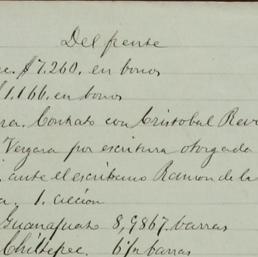 Del frente
c. $7.260. en bonos
1.166. en bonos
ra. Contrato con Cristobal Rev
Vergara por escritura otorgada
ante el escribano Ramon de la
a, 1. accion
Guanajuato 8,9867. barras
Chiltepec. 6 barras